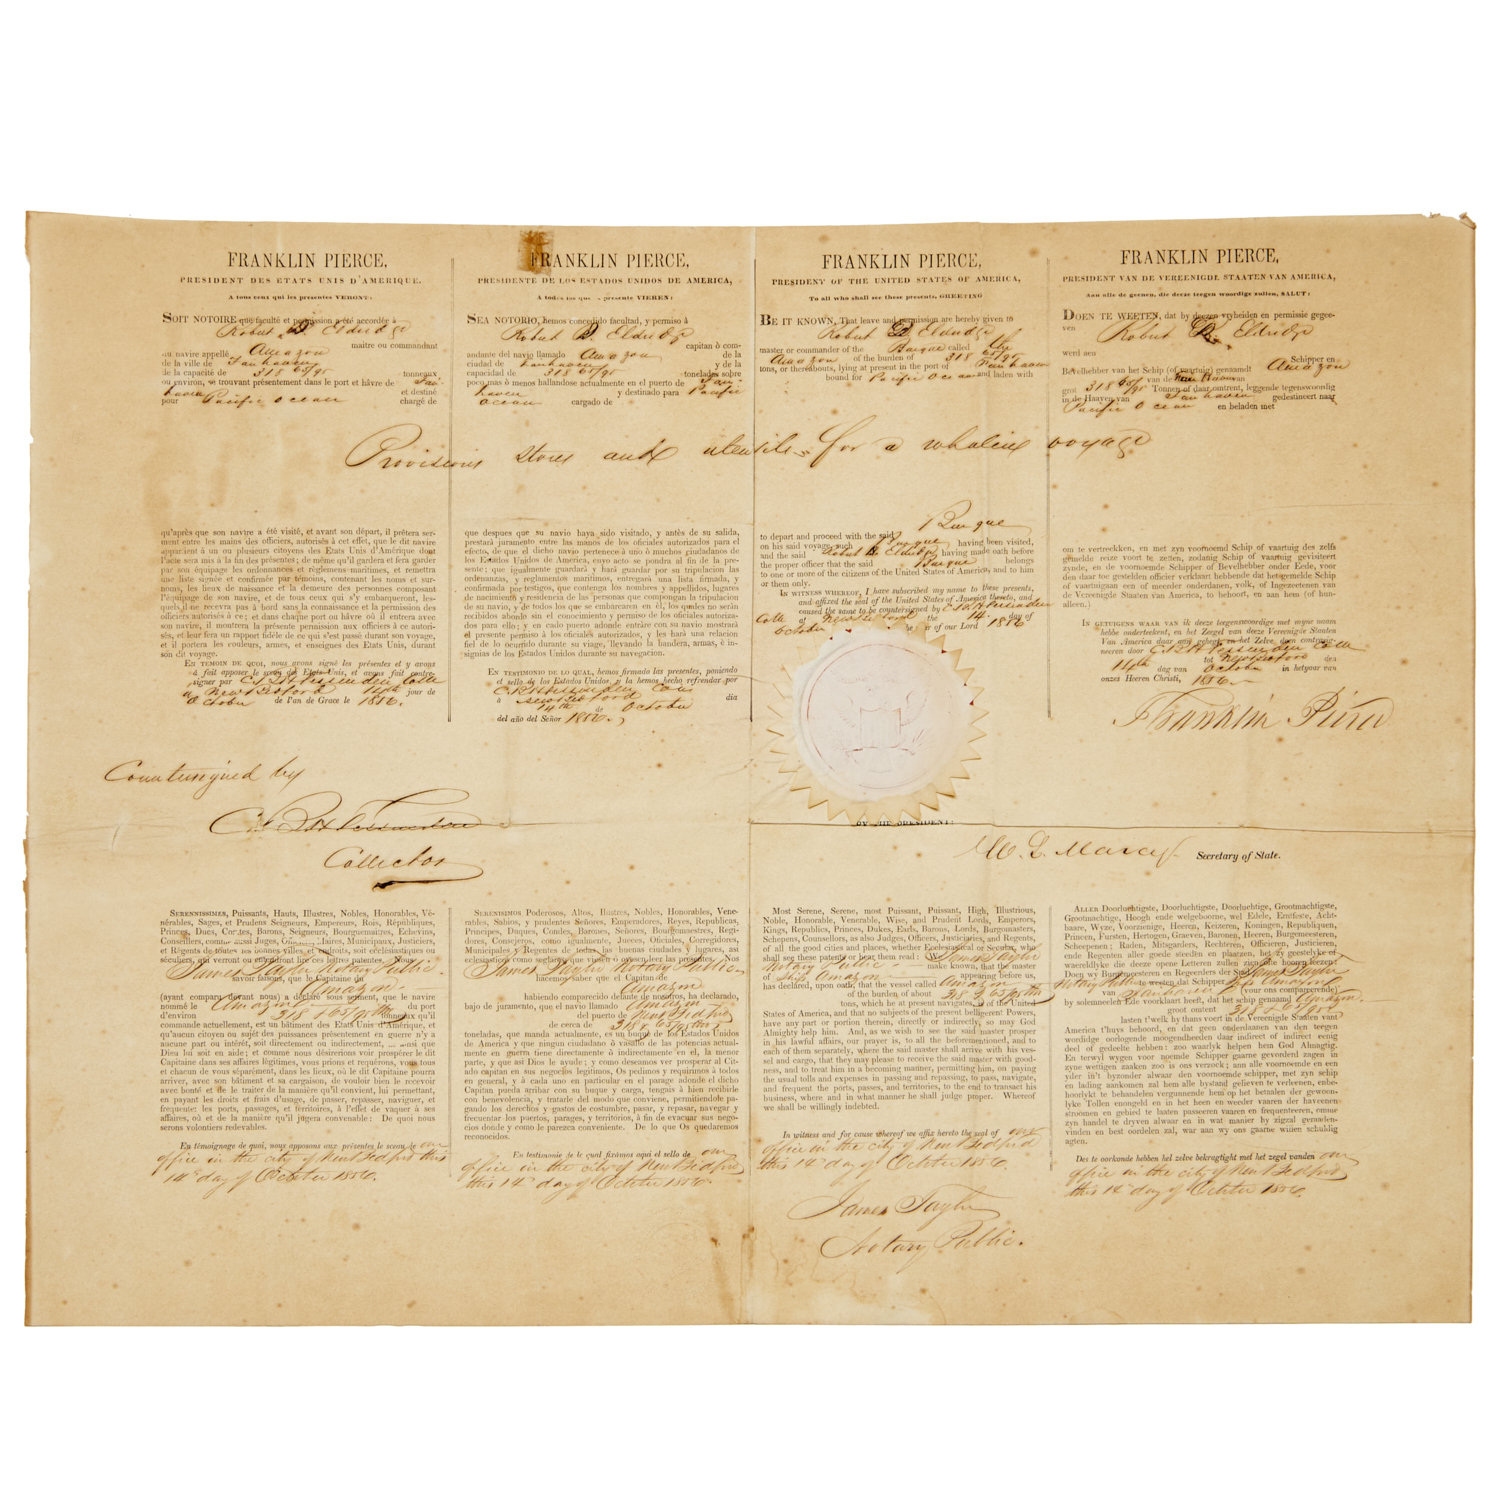 FRANKLIN PIERCE,
PRESIDENT DES ETATS UNIS D'AMERIQUE.
A tous ceux qui les presentes VERONT:
SOIT NOTOIRE que faculté et permission a été accordée à
Robert D. Eldridge
maitre ou commandant
du navire appellé Amazon
de la ville de Fairhaven
de la capacité de 318 65/95 tonneaux
ou environ, se trouvant présentement dans le port et hâvre de Fair-
haven et destiné
pour Pacific Ocean chargé de
FRANKLIN PIERCE,
PRESIDENTE DE LOS ESTADOS UNIDOS DE AMERICA,
A todos los que presente VIEREN:
SEA NOTORIO, hemos concedido facultad, y permiso á
Robert D. Eldridge
capitan ò com-
andante del navio llamado Amazon de la
ciudad de Fairhaven y de la
capacidad de 318 65/95 tonelados sobre
poco mas ò menos hallandose actualmente en el puerto de Fair-
haven y destinado para Pacific
Ocean cargado de
FRANKLIN PIERCE,
PRESIDENT OF THE UNITED STATES OF AMERICA,
To all who shall see these presents, GREETING
BE IT KNOWN, That leave and permission are hereby given to
Robert D. Eldridge
master or commander of the Barque called the
Amazon of the burden of 318 65/95
tons, or thereabouts, lying at present in the port of Fairhaven
bound for Pacific Ocean and laden with
FRANKLIN PIERCE,
PRESIDENT VAN DE VEREENIGDE STAATEN VAN AMERICA,
Aan alle de geenen, die deeze teegen woordige zullen, SALUT:
DOEN TE WEETEN, dat by deezen vryheiden en permissie gegee-
ven Robert D. Eldridge
werd aen Schipper en
Bevelhebber van het Schip (of vaartuig) genaamdt Amazon
van de Fairhaven
grot 318 65/95 Tonnen of daar omtrent, leggende tegenswoordig
in de Haaven van Fairhaven gedestineert naar
Pacific Ocean en beladen met
Provisions Stores and utensils for a whaling voyage
qu'après que son navire a été visité, et avant son départ, il prêtera ser-
ment entre les mains des officiers, autorisés à cet effet, que le dit navire
appartient à un ou plusieurs citoyens des Etats Unis d'Amérique dont
l'acte sera mis à la fin des présentes; de même qu'il gardera et fera garder
par son équipage les ordonnances et règlemens maritimes, et remettra
une liste signée et confirmée par témoins, contenant les noms et sur-
noms, les lieux de naissance et la demeure des personnes composant
l'équipage de son navire, et de tous ceux qui s'y embarqueront, les-
quels il ne recevra pas à bord sans la connaissance et la permission des
officiers autorisés à ce; et dans chaque port ou hâvre où il entrera avec
son navire, il montrera la présente permission aux officiers à ce autori-
sés, et leur fera un rapport fidèle de ce qui s'est passé durant son voyage,
et il portera les couleurs, armes, et enseignes des Etats Unis, durant
son dit voyage.
EN TEMOIN DE QUOI, nous avons signé les présentes et y avons
à fait apposer le sceau des Etats Unis, et avons fait contre-
signer par C. B. H. Fessenden Colle
à New Bedford 14th jour de
October de l'an de Grace le 1856.
que despues que su navio haya sido visitado, y antès de su salida,
prestará juramento entre las manos de los oficiales autorizados para el
efecto, de que el dicho navio pertenece à uno ó muchos ciudadanos de
los Estados Unidos de America, cuyo acto se pondra al fin de la pre-
sente; que igualmente guardará y hará guardar por su tripulacion las
ordenanzas, y reglamentos maritimos, entregará una lista firmada, y
confirmada por testigos, que contenga los nombres y appellidos, lugares
de nacimiento y residencia de las personas que compongan la tripulacion
de su navio, y de todos los que se embarcaren en él, los quales no serán
recibidos abordo sin el conocimiento y permiso de los oficiales autoriza-
dos para ello; y en cada puerto adonde entráre con su navio mostrará
el presente permiso à los oficiales autorizados, y les hará una relacion
fiel de lo ocurrido durante su viage, llevando la bandera, armas, è in-
signias de los Estados Unidos durante su navegacion.
EN TESTIMONIO DE LO QUAL, hemos firmado las presentes, poniendo
el sello de los Estados Unidos, y la hemos hecho refrendar por
C. B. H. Fessenden Coll
á New Bedford dia
14th de October
del año del Señor 1856.
Barque
to depart and proceed with the said
on his said voyage, such Barque having been visited,
and the said Robert D. Eldridge having made oath before
the proper officer that the said Barque belongs
to one or more of the citizens of the United States of America, and to him
or them only.
IN WITNESS WHEREOF, I have subscribed my name to these presents,
and affixed the seal of the United States of America thereto, and
caused the same to be countersigned by C. B. H. Fessenden
Colle at New Bedford the 14 day of
October of our Lord 1856
om te vertreekken, en met zyn voornoemd Schip of vaartuig des zelfs
gemelde reize voort te zetten, zodanig Schip of vaartuig gevisiteert
zynde, en de voornoemde Schipper of Bevelhebber onder Eede, voor
den daar toe gestelden officier verklaart hebbende dat hetgemelde Schip
of vaartuigaan een of meerder onderdanen, volk, of Ingezeetenen van
de Vereenigde Staaten van America, te behoort, en aan hem (of hun-
alleen.)
IN GETUIGENS WAAR VAN ik deeze teegenswoordige met myne naam
hebbe onderteekent, en het Zeegel van deeze Vereenigde Staaten
Van America daar aan gehegt en het Zelve doen contreisig-
neeren door C. B. H. Fessenden Colle
tot New Bedford den
14th dag van October in hetyear van
onzes Heeren Christi, 1856
Franklin Pierce
Countersigned by
C. B. H. Fessenden
Collector
BY THE PRESIDENT:
W. L. Marcy Secretary of State.
SERENNISSIMES, Puissants, Hauts, Illustres, Nobles, Honorables, Vé-
nérables, Sages, et Prudens Seigneurs, Empereurs, Rois, Républiques,
Princes, Ducs, Comtes, Barons, Seigneurs, Bourguemaitres, Echevins,
Conseillers, comme aussi Juges, Officiers, Maires, Municipaux, Justiciers,
et Régents de toutes les bonnes villes et endroits, soit ecclésiastiques ou
séculiers, qui verront ou entendront lire ces lettres patentes. Nous
James Taylor Notary Public
savoir faisons, que le Capitaine du
Amazon
(ayant comparu devant nous) a déclaré sous serment, que le navire
nommé le Amazon du port
d'environ 318 & 65/95ths tonneaux qu'il
commande actuellement, est un bâtiment des Etats Unis d'Amérique, et
qu'aucun citoyen ou sujet des puissances présentement en guerre n'y a
aucune part ou intérêt, soit directement ou indirectement, ainsi que
Dieu lui soit en aide; et comme nous désirerions voir prospérer le dit
Capitaine dans ses affaires légitimes, nous vous prions tous
et chacun de vous séparément, dans les lieux, où le dit Capitaine pourra
arriver, avec son bâtiment et sa cargaison, de vouloir bien le recevoir
avec bonté et de le traiter de la manière qu'il convient, lui permettant,
en payant les droits et frais d'usage, de passer, repasser, naviguer, et
frequenter les ports, passages, et térritoires, à l'effet de vaquer à ses
affaires, où et de la manière qu'il jugera convenable: De quoi nous
serons volontiers redevables.
En témoignage de quoi, nous apposons aux présentes le sceau de our
office in the city of New Bedford this
14th day of October 1856.
SERENISIMOS Poderosos, Altos, Ilustres, Nobles, Honorables, Vene-
rables, Sabios, y prudentes Señores, Emperadores, Reyes, Republicas,
Principes, Duques, Condes, Barones, Señores, Bourgomaestres, Regi-
dores, Consejeros, como igualmente, Jueces, Oficiales, Corregidores,
Municipales, y Regentes de todas las buenas ciudades y lugares, asi
eclesiasticos como seglares que viesen ó oyesen leer las presentes. Nos
James Taylor Notary Public
hacemos saber que el Capitan de
Amazon
habiendo comparecido delante de nosotros, ha declarado,
bajo de juramento, que el navio llamado Amazon
del puerto de New Bedford
de cerca de 318 & 65/95ths
toneladas, que manda actualmente, es un buque de los Estados Unidos
de America y que ningun ciudadano ò vasallo de las potencias actual-
mente en guerra tiene directamente ò indirectamente en el, la menor
parte, y que asi Dios le ayude; y como deseamos ver prosperar al Cit-
ado capitan en sus negocios legitimos, Os pedimos y requirimos á todos
en general, y á cada uno en particular en el parage adonde el dicho
Capitan pueda arribar con su buque y carga, tengais à bien recibirle
con benevolencia, y tratarle del modo que conviene, permitiendole pa-
gando los derechos y gastos de costumbre, pasar, y repasar, navegar y
frecuentar los puertos, parages, y territorios, à fin de evacuar sus nego-
cios donde y como le parezca conveniente. De lo que Os quedaremos
reconocidos.
En testimonio de lo qual fixamos aqui el sello de our
office in the city of New Bedford
this 14th day of October 1856.
Most Serene, Serene, most Puissant, Puissant, High, Illustrious,
Noble, Honorable, Venerable, Wise, and Prudent Lords, Emperors,
Kings, Republics, Princes, Dukes, Earls, Barons, Lords, Burgomasters,
Schepens, Counsellors, as also Judges, Officers, Justiciaries, and Regents,
of all the good cities and places, whether Ecclesiastical or Secular, who
shall see these patents or hear them read: We James Taylor
Notary Public make known, that the master
of Ship Amazon appearing before us,
has declared, upon oath, that the vessel called Amazon
of the burden of about 318 & 65/95ths
tons, which he at present navigates, is of the United
States of America, and that no subjects of the present belligerent Powers,
have any part or portion therein, directly or indirectly, so may God
Almighty help him. And, as we wish to see the said master prosper
in his lawful affairs, our prayer is, to all the beforementioned, and to
each of them separately, where the said master shall arrive with his ves-
sel and cargo, that they may please to receive the said master with good-
ness, and to treat him in a becoming manner, permitting him, on paying
the usual tolls and expenses in passing and repassing, to pass, navigate,
and frequent the ports, passes, and territories, to the end to transact his
business, where and in what manner he shall judge proper. Whereof
we shall be willingly indebted.
In witness and for cause whereof we affix hereto the seal of our
office in the city of New Bedford
this 14th day of October 1856.
James Taylor
Notary Public.
ALLER Doorluchtigste, Doorluchtigste, Doorluchtige, Grootmachtigste,
Grootmachtige, Hoogh ende welgeboorne, wel Edele, Erntfeste, Acht-
baare, Wyze, Voorzienige, Heeren, Keizeren, Koningen, Republiquen,
Princen, Fursten, Hertogen, Graeven, Baronen, Heeren, Burgemeesteren,
Scheepenen; Raden, Mitsgarders, Rechteren, Officieren, Justicieren,
ende Regenten aller goede steeden en plaatzen, het zy geestelyke of
waereldlyke die deeze opene Letteren zullen zien ofte hooren leezen:
Doen wy Burgemeesteren en Regeerders der Stad James Taylor
Notary Public te westen dat Schipper Ship Amazon
van Fairhaven (voor ons compareerende)
by solemneelen Ede voorklaart heeft, dat het schip genaamd Amazon
groot omtent 318 & 65/95
lasten t'welk by thans voert in de Vereenigde Staaten van
America t'huys behoord, en dat geen onderdaanen van den teegen
wordidge oorlogende moogendheeden daar indirect of indirect eenig
deel of gedeelte hebben: zoo waarlyk helpen hem God Almagtig.
En terwyl wygen voor noemde Schipper gaarne gevorderd zagen in
zyne wettigen zaaken zoo is ons verzoek; ann alle voornoemde en een
yder in't byzonder alwaar den voornoemde schipper, met zyn schip
en lading aankomen zal hem alle bystand gelieven te verleenen, enbe-
hoorlykt te behandelen vergunnende hem op het betaalen der gewoon-
lyke Tollen enongeld en in het heen en weeder vaaren der haevenen
stroomen en gebied te lasten passeeren vaaren en frequenteeren, omme
zyn handel te dryven alwaar en in wat manier hy zigzal geraaden-
vinden en best oordelen zal, war aan wy ons gaarne willen schuldig
agten.
Des te oorkande hebben hel zelve bekragtight met het zegel vanden our
office in the city of New Bedford
this 14th day of October 1856.